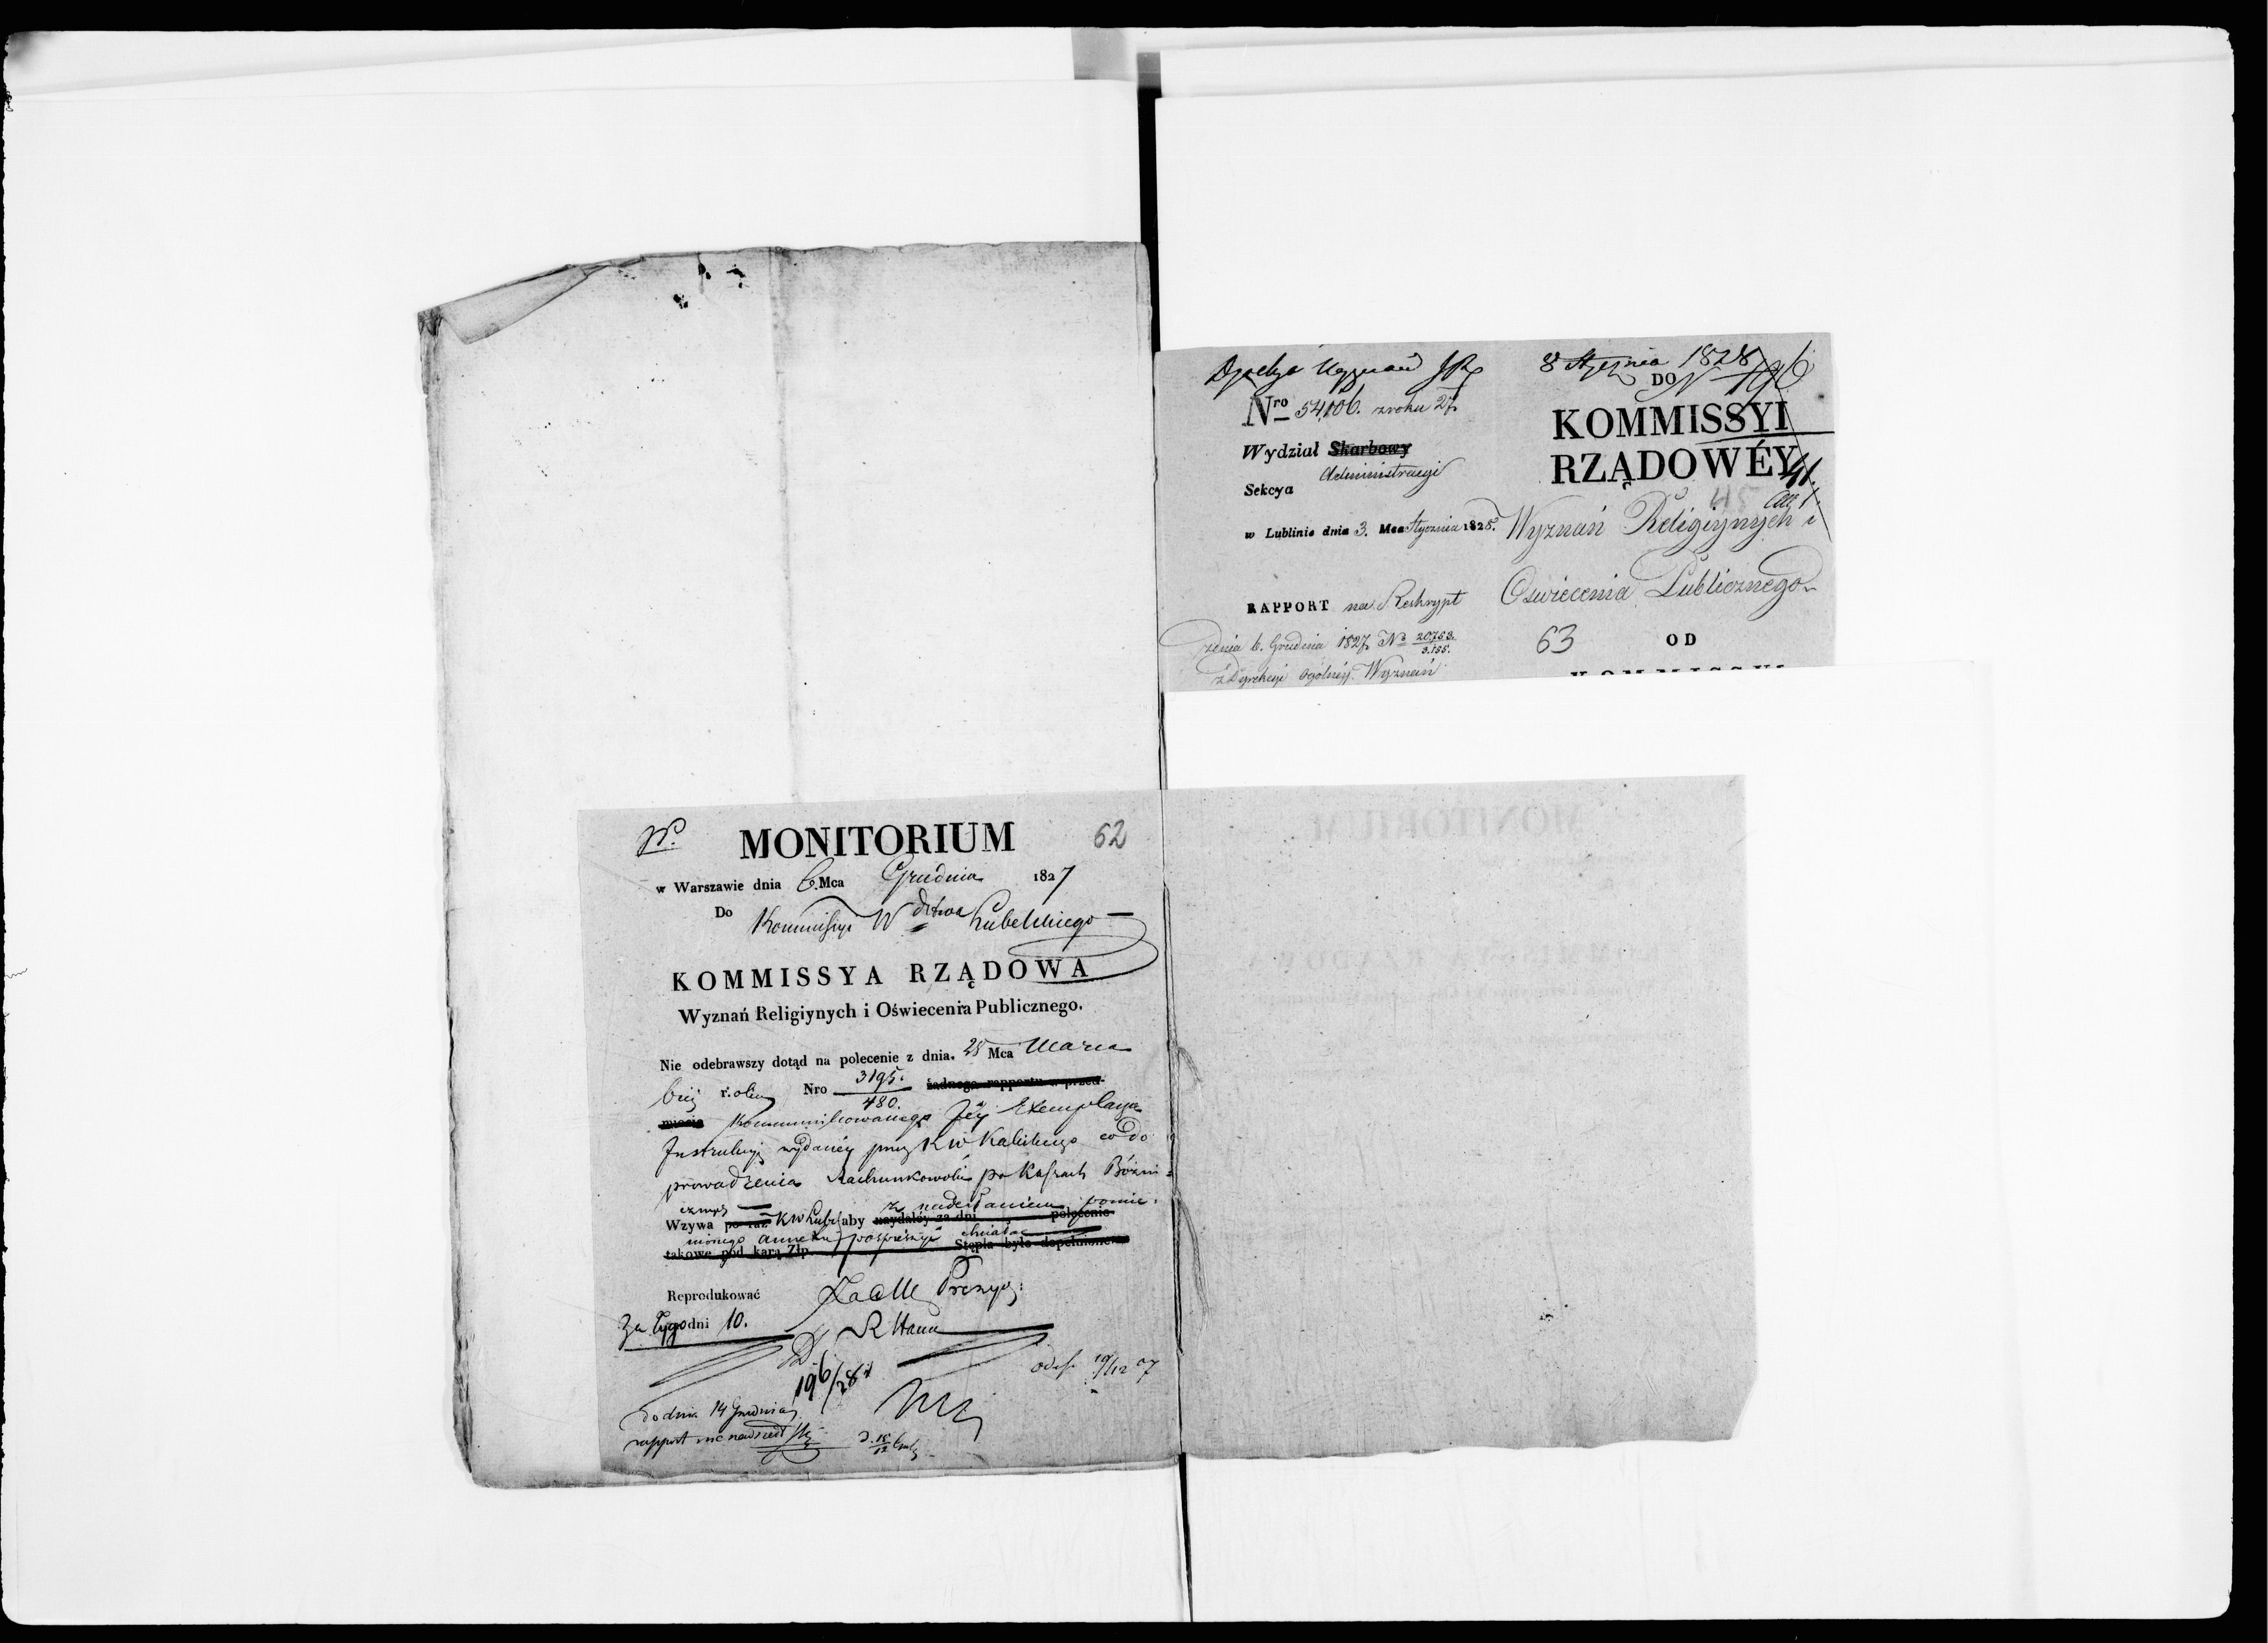 W.
MONITORIUM
62
w Warszawie dnia 6. Mca Grudnia 1827
Do Kommissyi Wdztwa Lubelskiego
KOMMISSYA RZĄDOWA
Wyznań Religiynych i Oświecenia Publicznego.
Nie odebrawszy dotąd na polecenie z dnia. 28 Mca Marca
bież roku Nro 3195./480. żadnego rapportu w przed-
miocie kommunikowanego Jéy Exemplarza
Instrukcyi wydanéy przez KW Kaliskiego co do
prowadzenia Rachunkowości po Kassach Bóżni-
cznych
z nadesłaniem pomie-
Wzywa po raz KW Lubel aby naydaléy za dni polecenie
nionego annexu pośpieszyć chciała
takowe pod karą Złp. Stępla było dopełnione
Reprodukować
Za Tygodni 10.
Prezyd:
196/28
odesł. 19/12 27
do dnia 14 Grudnia
rapport nie nadszedł
Dyrekcya Wyznań
8 Stycznia 1828
N 196
DO
Nro 54,106. z roku 27
KOMMISSYI
RZĄDOWÉY
Wydział Skarbowy
Administracyi
Sekcya
41.
w Lublinie dnia 3. Mca Stycznia 1828.
Wyznań Religiynych i
Oswiecenia Publicznego
RAPPORT na Reskrypt
z dnia 6. Grudnia 1827 No 20763./3.155.
z Dyrekcyi Ogólnéy Wyznań
63
OD